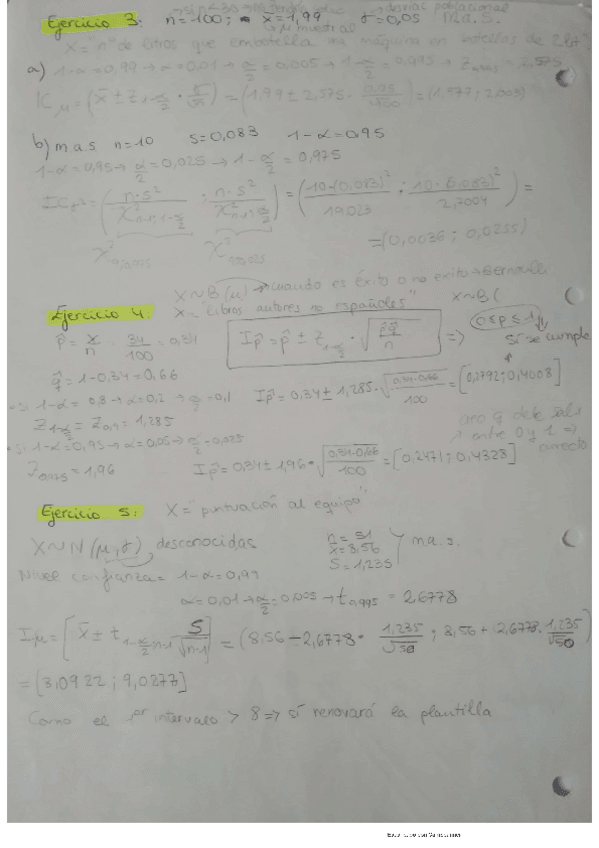 Ejercicio 3: n=100; x̄=1,99 σ=0,05 m.a.s.
μ muestral
X="nº de litros que embotella una máquina en botellas de 2 lit".
a) 1-α=0,99 → α=0,01 → α/2=0,005 → 1-α/2=0,995 → Z0,995=2,575
ICμ=(x̄ ± Z1-α/2 · σ/√n)=(1,99 ± 2,575 · 0,05/√100)=(1,977; 2,003)
b) m.a.s n=10 s=0,083 1-α=0,95
1-α=0,95 → α/2=0,025 → 1-α/2=0,975
ICσ²=(n·s²/χ²n-1,1-α/2 ; n·s²/χ²n-1,α/2)=(10·(0,083)²/19,023 ; 10·(0,083)²/2,7004)=
=(0,0036; 0,0255)
cuando es éxito o no exito → Bernoulli
Ejercicio 4: X="libros autores no españoles" X~B(
p̂=x/n=34/100=0,34 Ip̂=p̂ ± Z1-α/2 · √(p̂q̂/n) => 0≤p≤1
Sí se cumple
q̂=1-0,34=0,66
Si 1-α=0,8 → α=0,2 → α/2=0,1 Ip̂=0,34 ± 1,285 · √(0,34·0,66/100)=[0,2792; 0,4008]
Z1-α/2=Z0,9=1,285
Si 1-α=0,95 → α=0,05 → α/2=0,025
entre 0 y 1 => correcto
Z0,975=1,96 Ip̂=0,34 ± 1,96 · √(0,34·0,66/100)=[0,2471; 0,4328]
Ejercicio 5: X="puntuación al equipo"
X~N(μ,σ), desconocidas n=51 x̄=8,56 S=1,235 m.a.s.
Nivel confianza=1-α=0,99
α=0,01 → α/2=0,005 → t0,995=2,6778
Iμ=[x̄ ± t1-α/2,n-1 S/√n-1]=(8,56-2,6778 · 1,235/√50 ; 8,56+2,6778 · 1,235/√50)
=(8,0922; 9,0277]
Como el 1er intervalo > 8 => sí renovará la plantilla